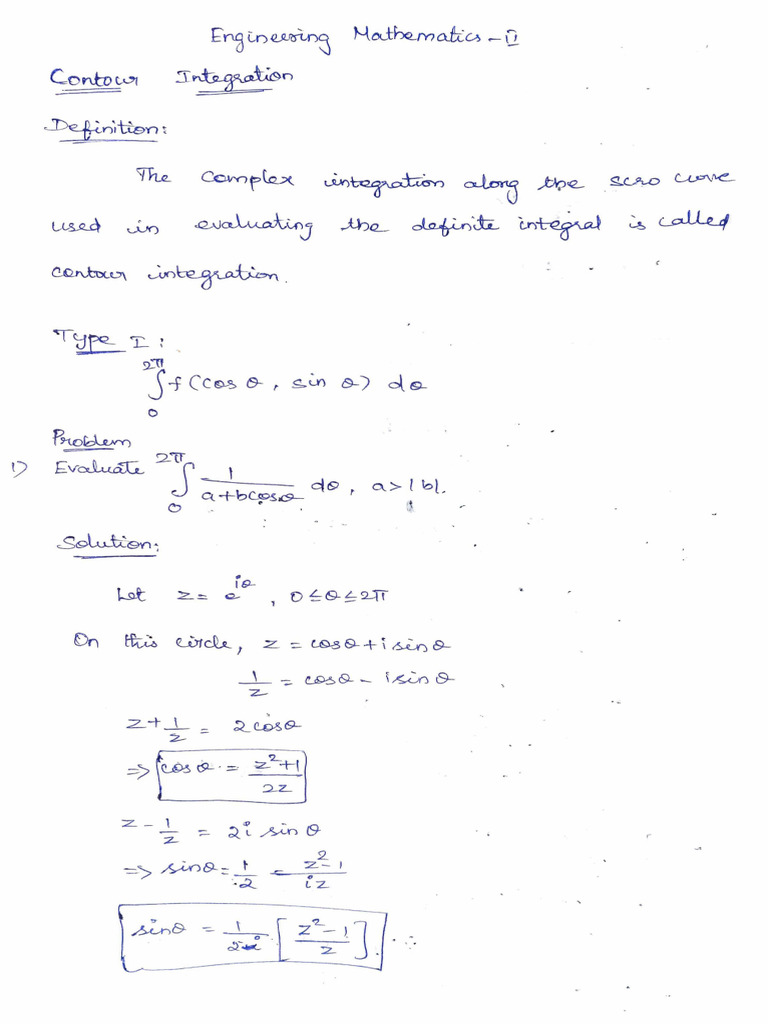 Engineering Mathematics - II
Contour Integration
Definition:
The complex integration along the scro curve
used in evaluating the definite integral is called
contour integration.
Type I :
∫₀^2π f(cos θ, sin θ) dθ
Problem
1) Evaluate ∫₀^2π 1/(a+bcosθ) dθ, a>|b|.
Solution:
Let z = e^iθ, 0≤θ≤2π
On this circle, z = cosθ + i sinθ
1/z = cosθ - isinθ
z + 1/z = 2cosθ
=> cosθ = (z²+1)/2z
z - 1/z = 2i sinθ
=> sinθ = 1/2 = (z²-1)/iz
sinθ = 1/2i [(z²-1)/z]